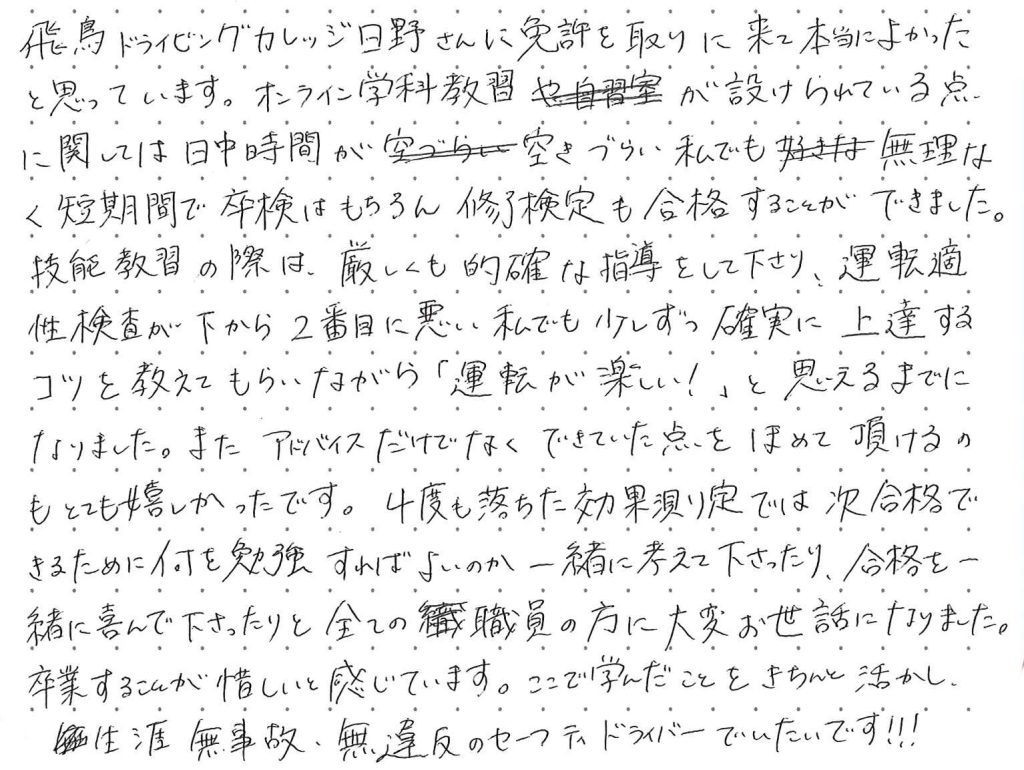 飛鳥ドライビングカレッジ日野さんに免許を取りに来て本当によかった
と思っています。オンライン学科教習や自習室が設けられている点
に関しては日中時間が空づらい空きづらい私でも好きな無理な
く短期間で卒検はもちろん修了検定も合格することができました。
技能教習の際は、厳しくも的確な指導をして下さり、運転適
性検査が下から2番目に悪い私でも少しずつ確実に上達する
コツを教えてもらいながら「運転が楽しい!」と思えるまでに
なりました。また アドバイスだけでなくできていた点をほめて頂けるの
もとても嬉しかったです。4度も落ちた効果測定では次合格で
きるために何を勉強すればよいのか一緒に考えて下さったり、合格を一
緒に喜んで下さったりと全ての職員の方に大変お世話になりました。
卒業することが惜しいと感じています。ここで学んだことをきちんと活かし、
生涯無事故、無違反のセーフティドライバーでいたいです!!!